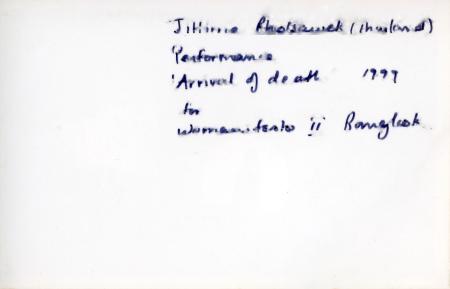 Jittima Pholsawek (Thailand)
Performance
'Arrival of death 1999
for
Womanifesto II Bangkok